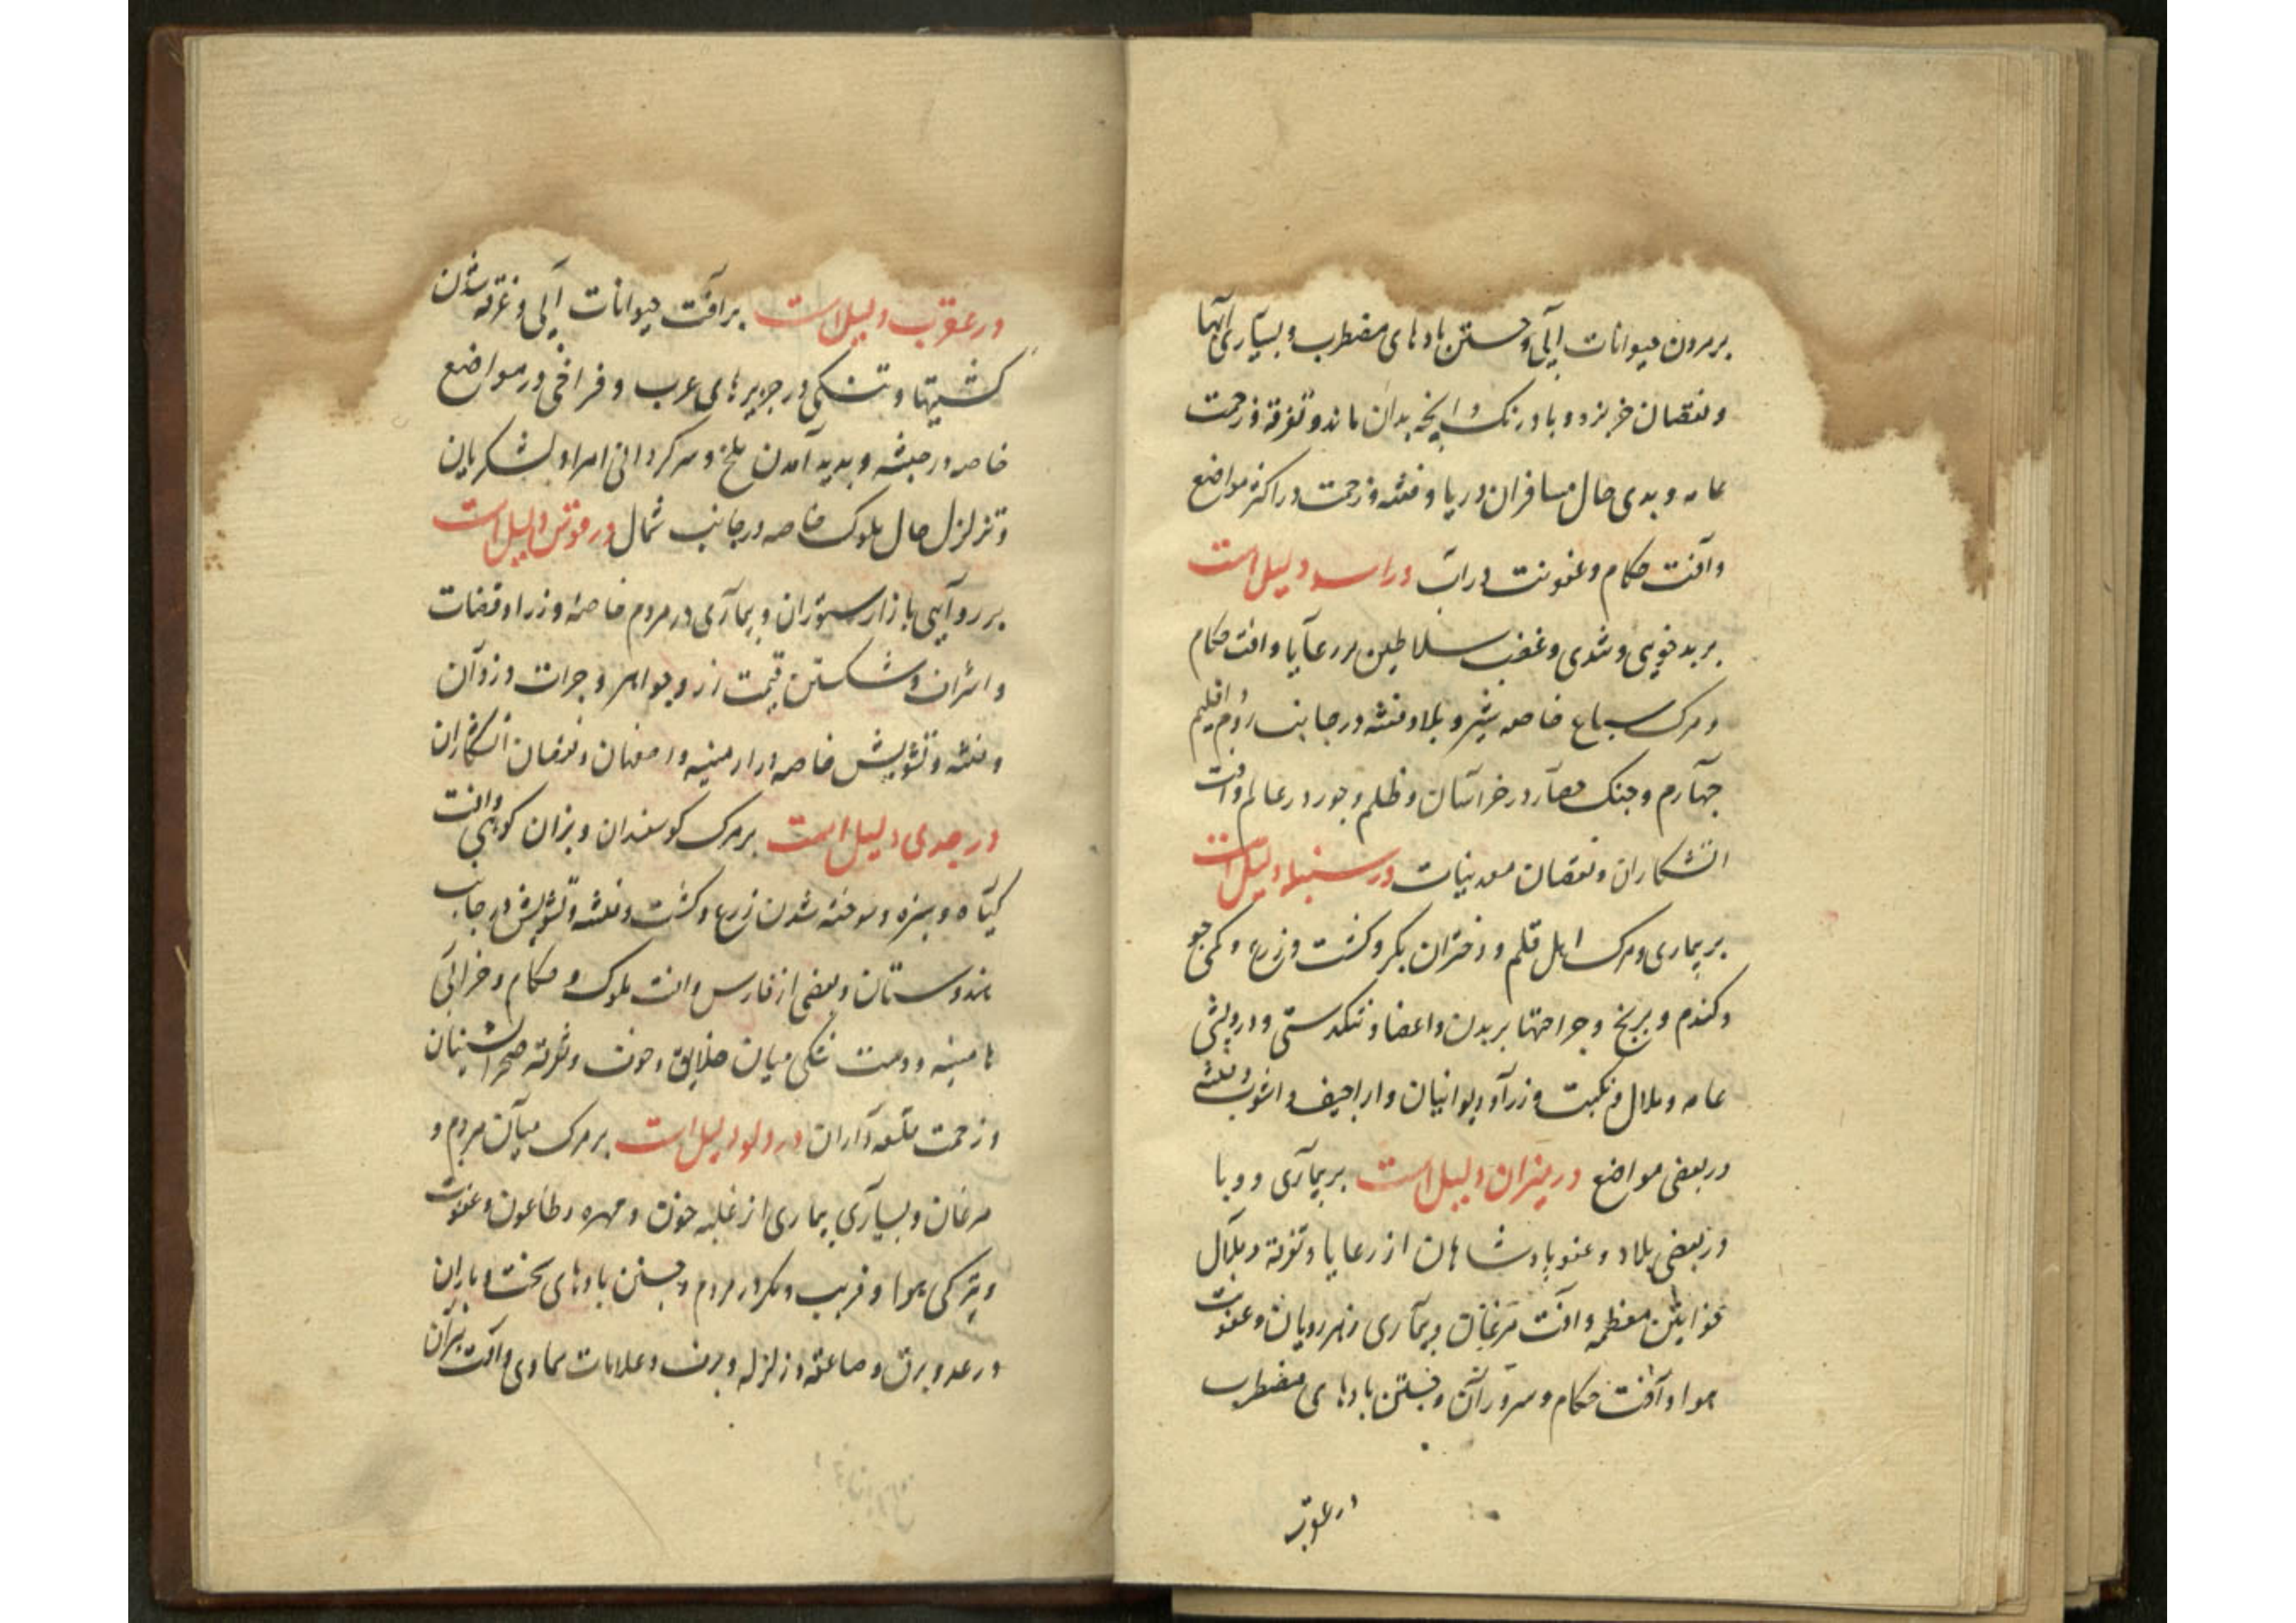 بر مردن حیوانات آبی و جستن بادهای مضطرب و بسیاری آبها
و نقصان خربزه و بادرنک و آنچه بدان ماند و تفرقه و زحمت
عامه و بدی حال مسافران دریا و فتنه و زحمت در اکثر مواضع
و آفت حکام و عفونت در آب در اسد دلیل است
بر بدخویی و تندی و غضب سلاطین بر رعایا و افت حکام
و مرک سباع خاصه شیر و بلا و فتنه در جانب روم و اقلیم
چهارم و جنک حصار در خراسان و ظلم و جور در عالم و افت
اتشکاران و نقصان معدنیات در سنبله دلیل است
بر بیماری و مرک اهل قلم و دختران بکر و کشت و زرع و کمی جو
و کندم و برنج و جراحتها بر بدن و اعضا و تنکدستی و درویشی
عامه و ملال و نکبت وزرا و دیوانیان و اراجیف و اشوب و فتنه
در بعضی مواضع در میزان دلیل است بر بیماری و وبا
در بعضی بلاد و عفو پادشاهان از رعایا و تفرقه و ملال
خواتین معظمه و افت مرغان و بیماری زهره رویان و عفونت
هوا و آفت حکام و سروران و جستن بادهای مضطرب
در عقرب
در عقرب دلیل است بر افت حیوانات آبی و غرقه شدن
کشتیها و تنکی در جزیرهای عرب و فراخی در مواضع
خاصه در حبشه و پدید آمدن ملخ و سرکردانی امرا و لشکریان
و تزلزل حال ملوک خاصه در جانب شمال در قوس دلیل است
بر روایی بازار ستوران و بیماری در مردم خاصه وزرا و قضات
و اشراف و شکستن قیمت زر و جواهر و جرات دزدان
و فتنه و تشویش خاصه در ارمنیه و اصفهان و نقصان اتشکاران
در جدی دلیل است بر مرک کوسفندان و بزان کوهی و افت
کیاه و سبزه و سوخته شدن زرع و کشت و فتنه و تشویش در جانب
هندوستان و بعضی از فارس و افت ملوک و حکام و خرابی
میان خلایق و خوف و تفرقه صحرانشینان
و زحمت قلعه داران در دلو دلیل است بر مرک میان مردم و
مرغان و بسیاری بیماری از غلبه خون و طاعون و عفونت
و تیرکی هوا و فریب و مکر در مردم و جستن بادهای سخت و باران
و رعد و برق و صاعقه و زلزله و برف و علامات سماوی و افت